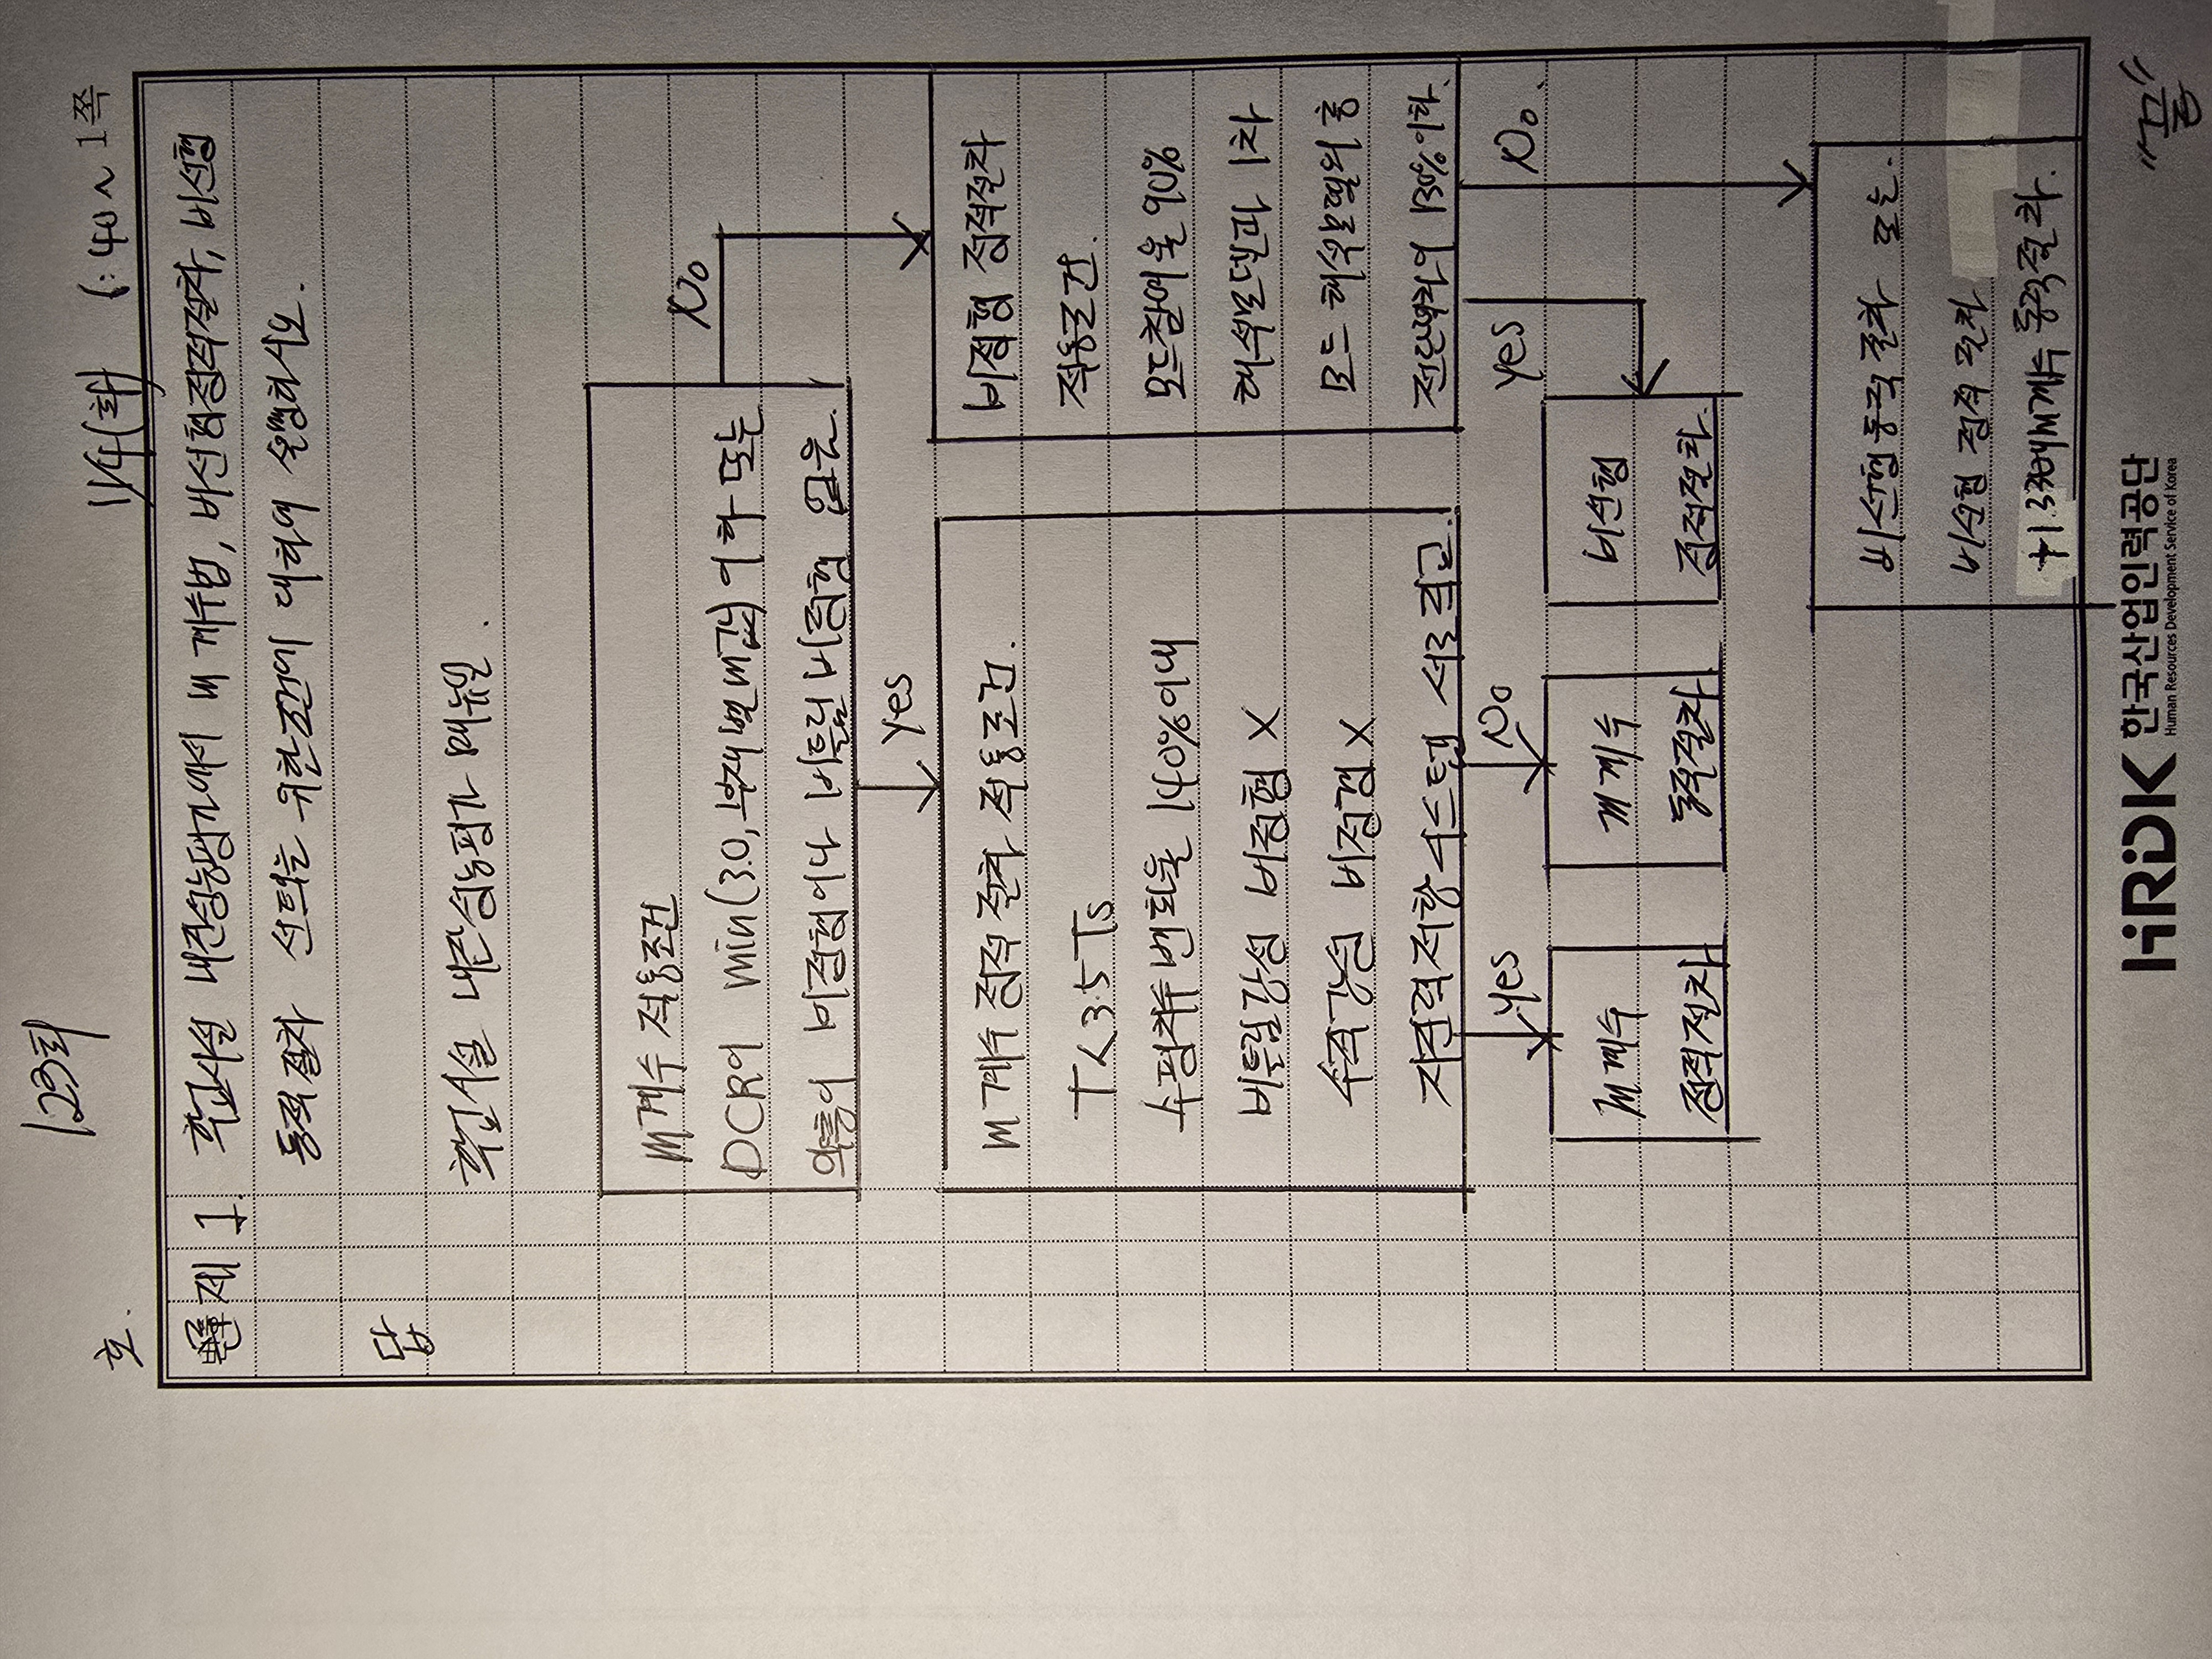 123회
11/4(화) 1:40~ 1쪽
호.
문제 1. 학교시설 내진성능평가에서 m계수법, 비선형정적절차, 비선형
동적절차 선택을 위한 조건에 대하여 설명하시오.
답
학교시설 내진성능평가 매뉴얼.
m계수 적용조건
DCR이 min(3.0, 부재별 m값) 이하 또는
약층이 비정형이나 비틀림 비정형 없음.
No
Yes
m계수 정적 절차 적용조건.
T<3.5Ts
수평치수 변화율 140%이내
비틀림강성 비정형 X
수직강성 비정형 X
지진력저항시스템 서로 직교.
비정형 정적절차
적용조건.
모드참여율 90%
해석결과 1차
모드 해석결과의
전단력의 130%이하.
Yes
No
Yes
No.
m계수
정적절차
m계수
동적절차
비선형
정적절차
비선형동적절차 또는.
비선형 정적절차
+1.33배m계수 동적절차.
HRDK 한국산업인력공단
Human Resources Development Service of Korea
"끝"